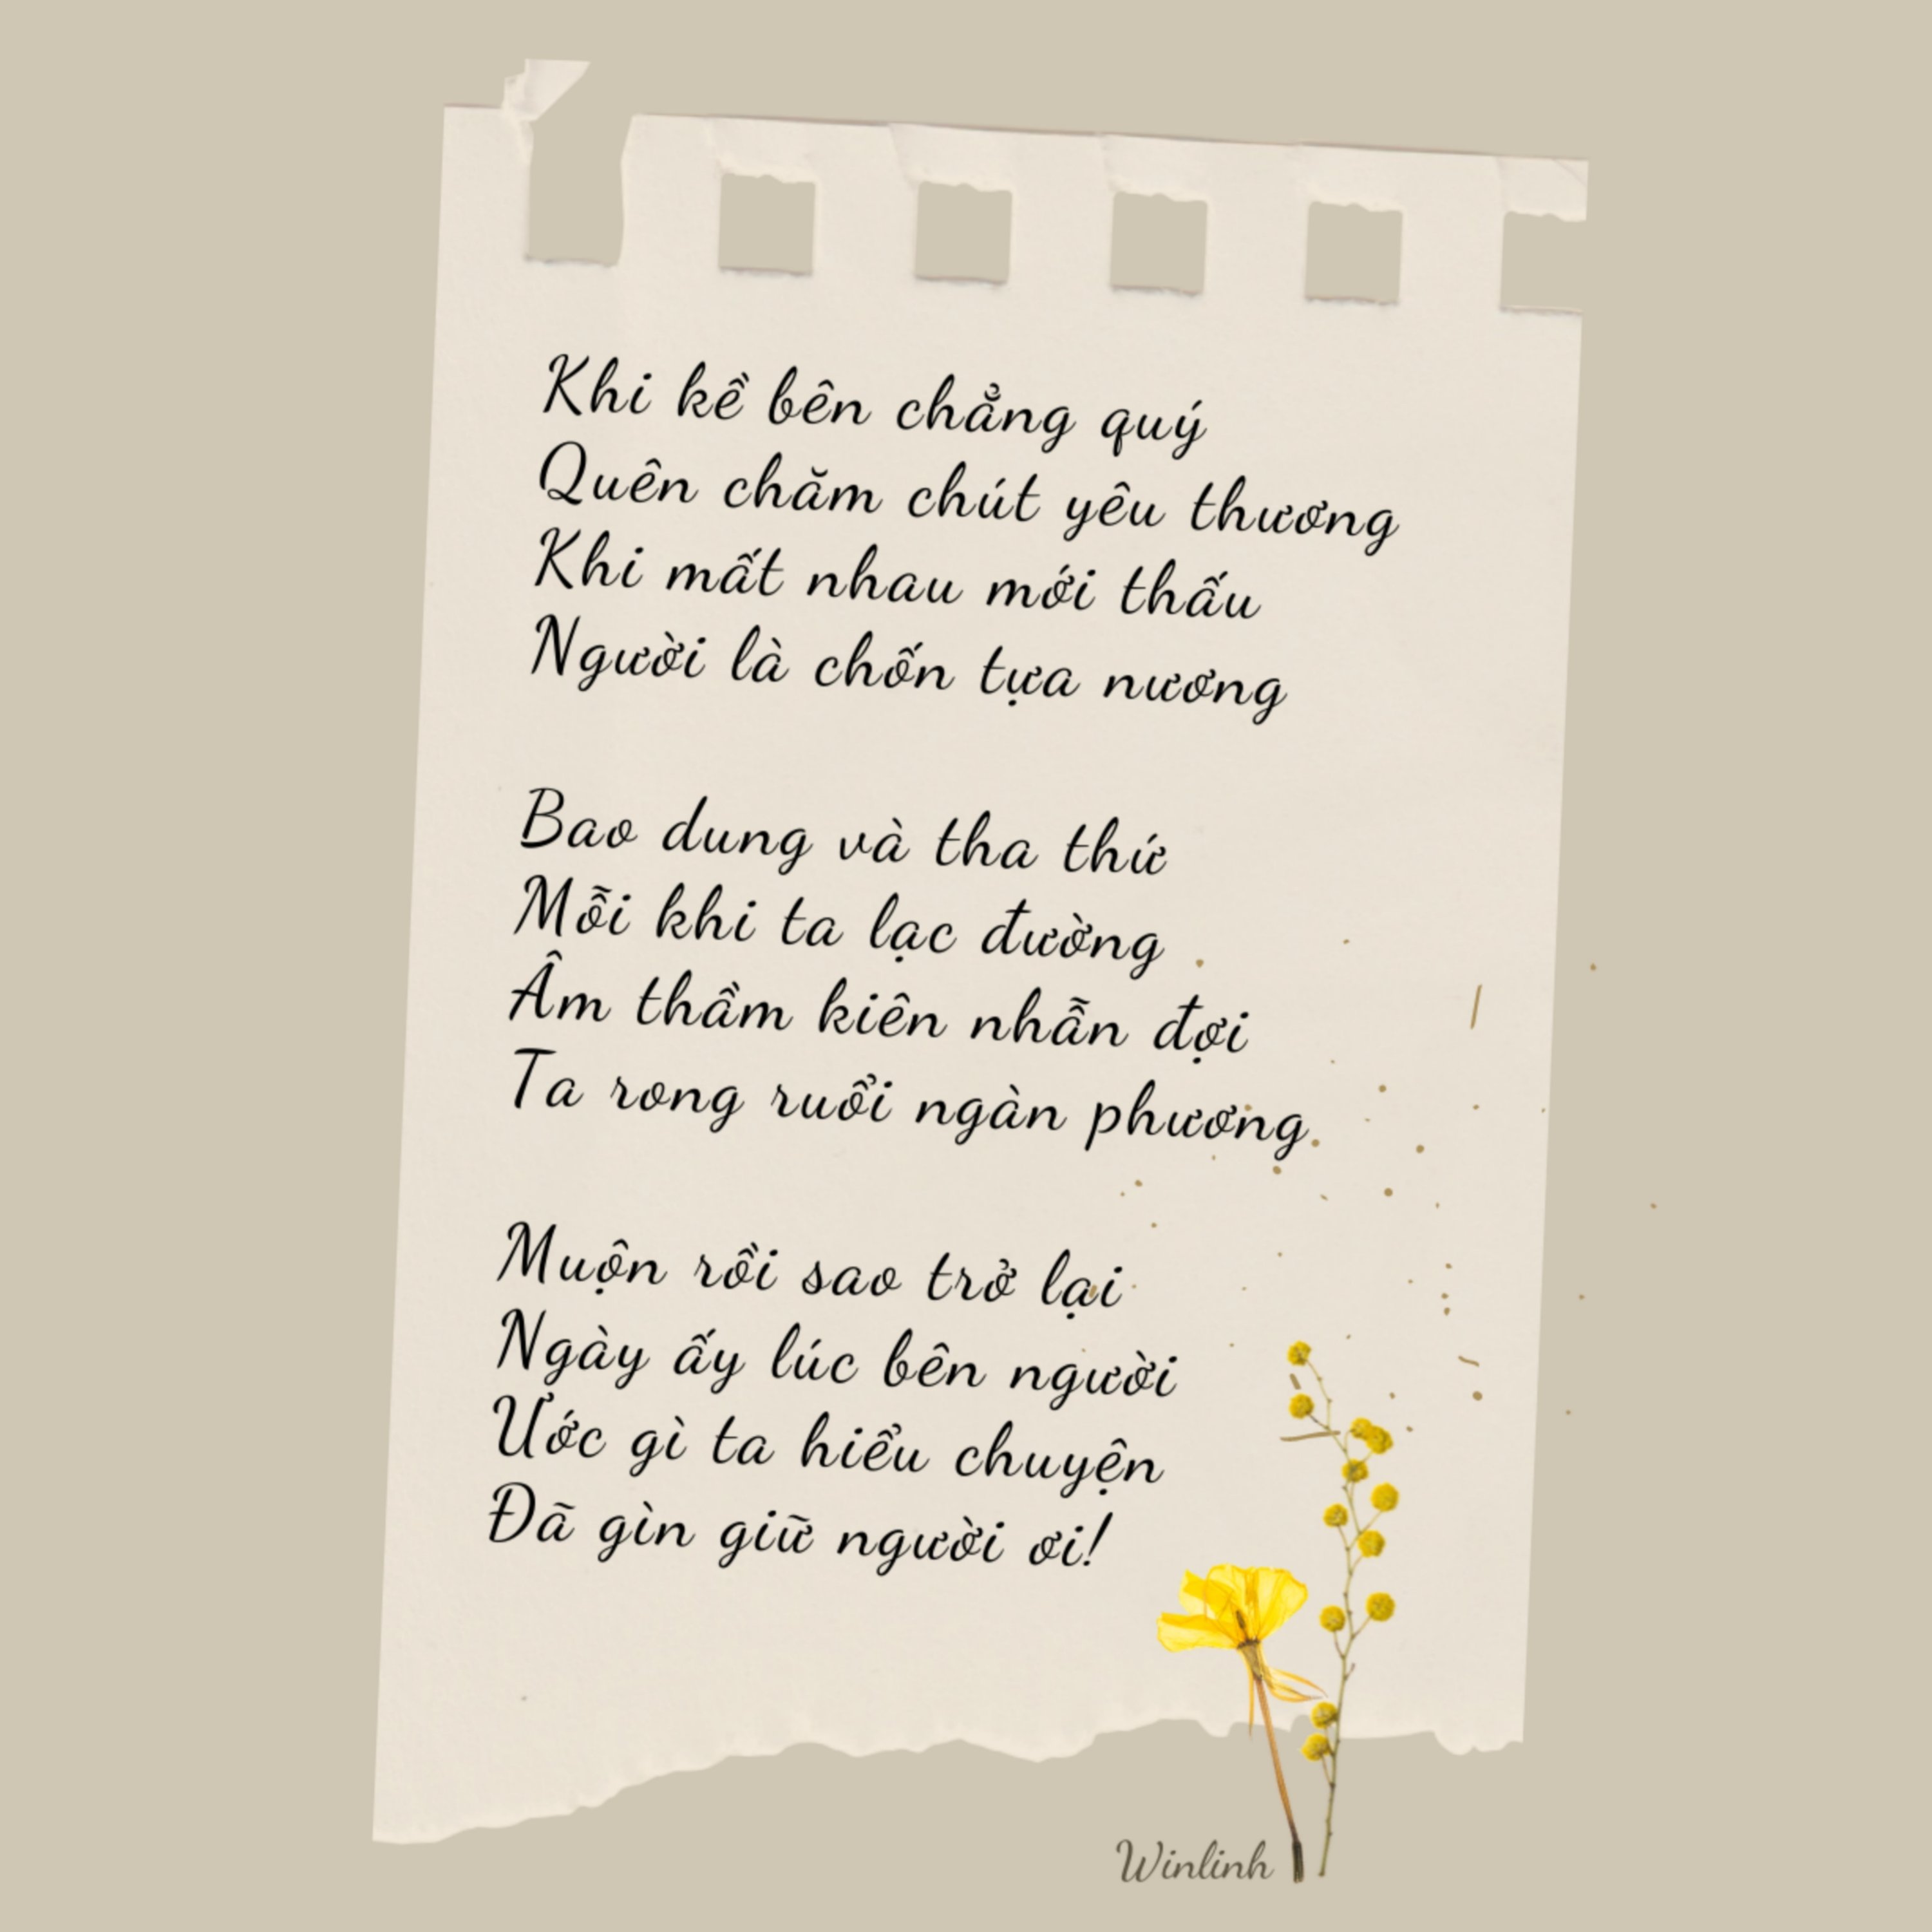 Khi kề bên chẳng quý
Quên chăm chút yêu thương
Khi mất nhau mới thấu
Người là chốn tựa nương
Bao dung và tha thứ
Mỗi khi ta lạc đường
Âm thầm kiên nhẫn đợi
Ta rong ruổi ngàn phương
Muộn rồi sao trở lại
Ngày ấy lúc bên người
Ước gì ta hiểu chuyện
Đã gìn giữ người ơi!
Winlinh